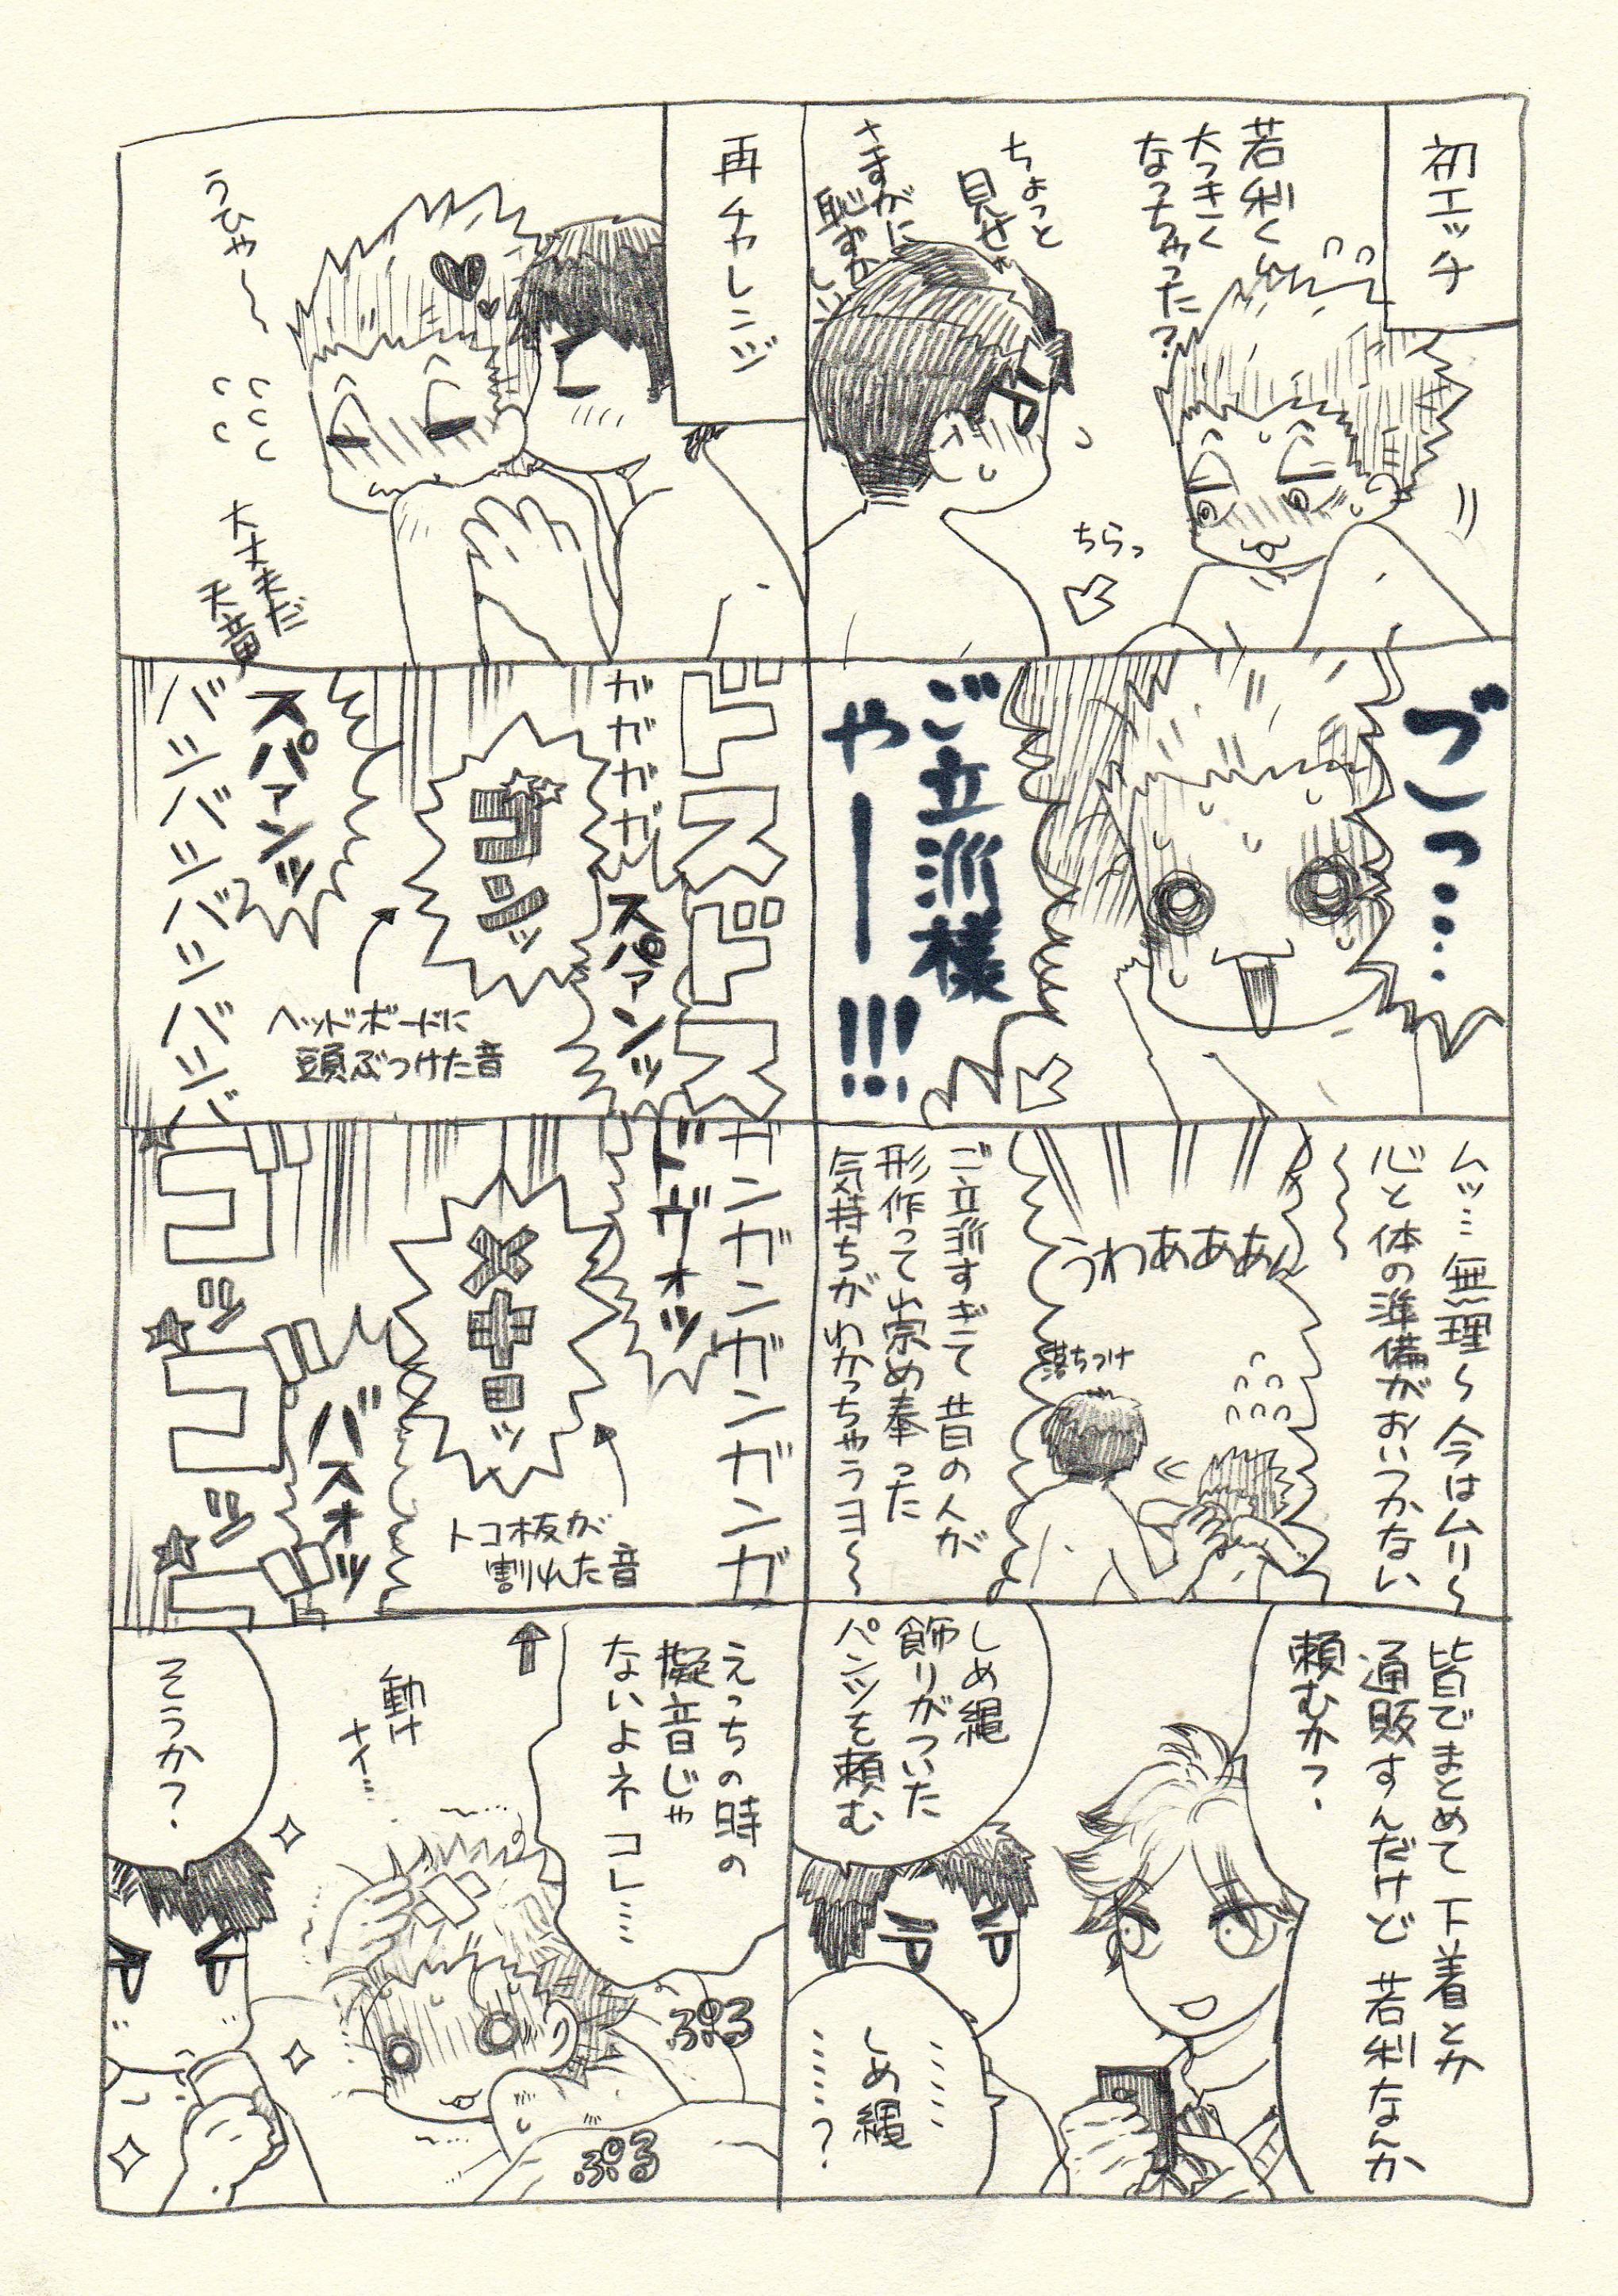 初エッチ
若利く
大っきく
なっちゃった?
ちょっと
見せ
さすがに
恥ずかしい
ちらっ
ごっ…
ご立派様
やー!!!
ムッ…無理〜今はムリ〜
心と体の準備がおいつかない
〜〜〜
うわあああん
落ちつけ
ご立派すぎて昔の人が
形作って崇め奉った
気持ちがわかっちゃうヨ〜
皆でまとめて下着とか
通販すんだけど若利なんか
頼むか?
しめ縄
飾りがついた
パンツを頼む
……
しめ縄
……?
再チャレンジ
うひゃ〜
大丈夫だ
天童
ドスドス
ガガガガ
スパァンッ
ゴンッ
ヘッドボードに
頭ぶつけた音
スパァンッ
バンバンバンバンバ
ガンガンガンガンガ
ドヴォッ
メキョッ
トコ板が
割れた音
バスオッ
ゴッゴッゴ
えっちの時の
擬音じゃ
ないよネコレ……
動け
ナイ…
ぷる
ぷる
そうか?